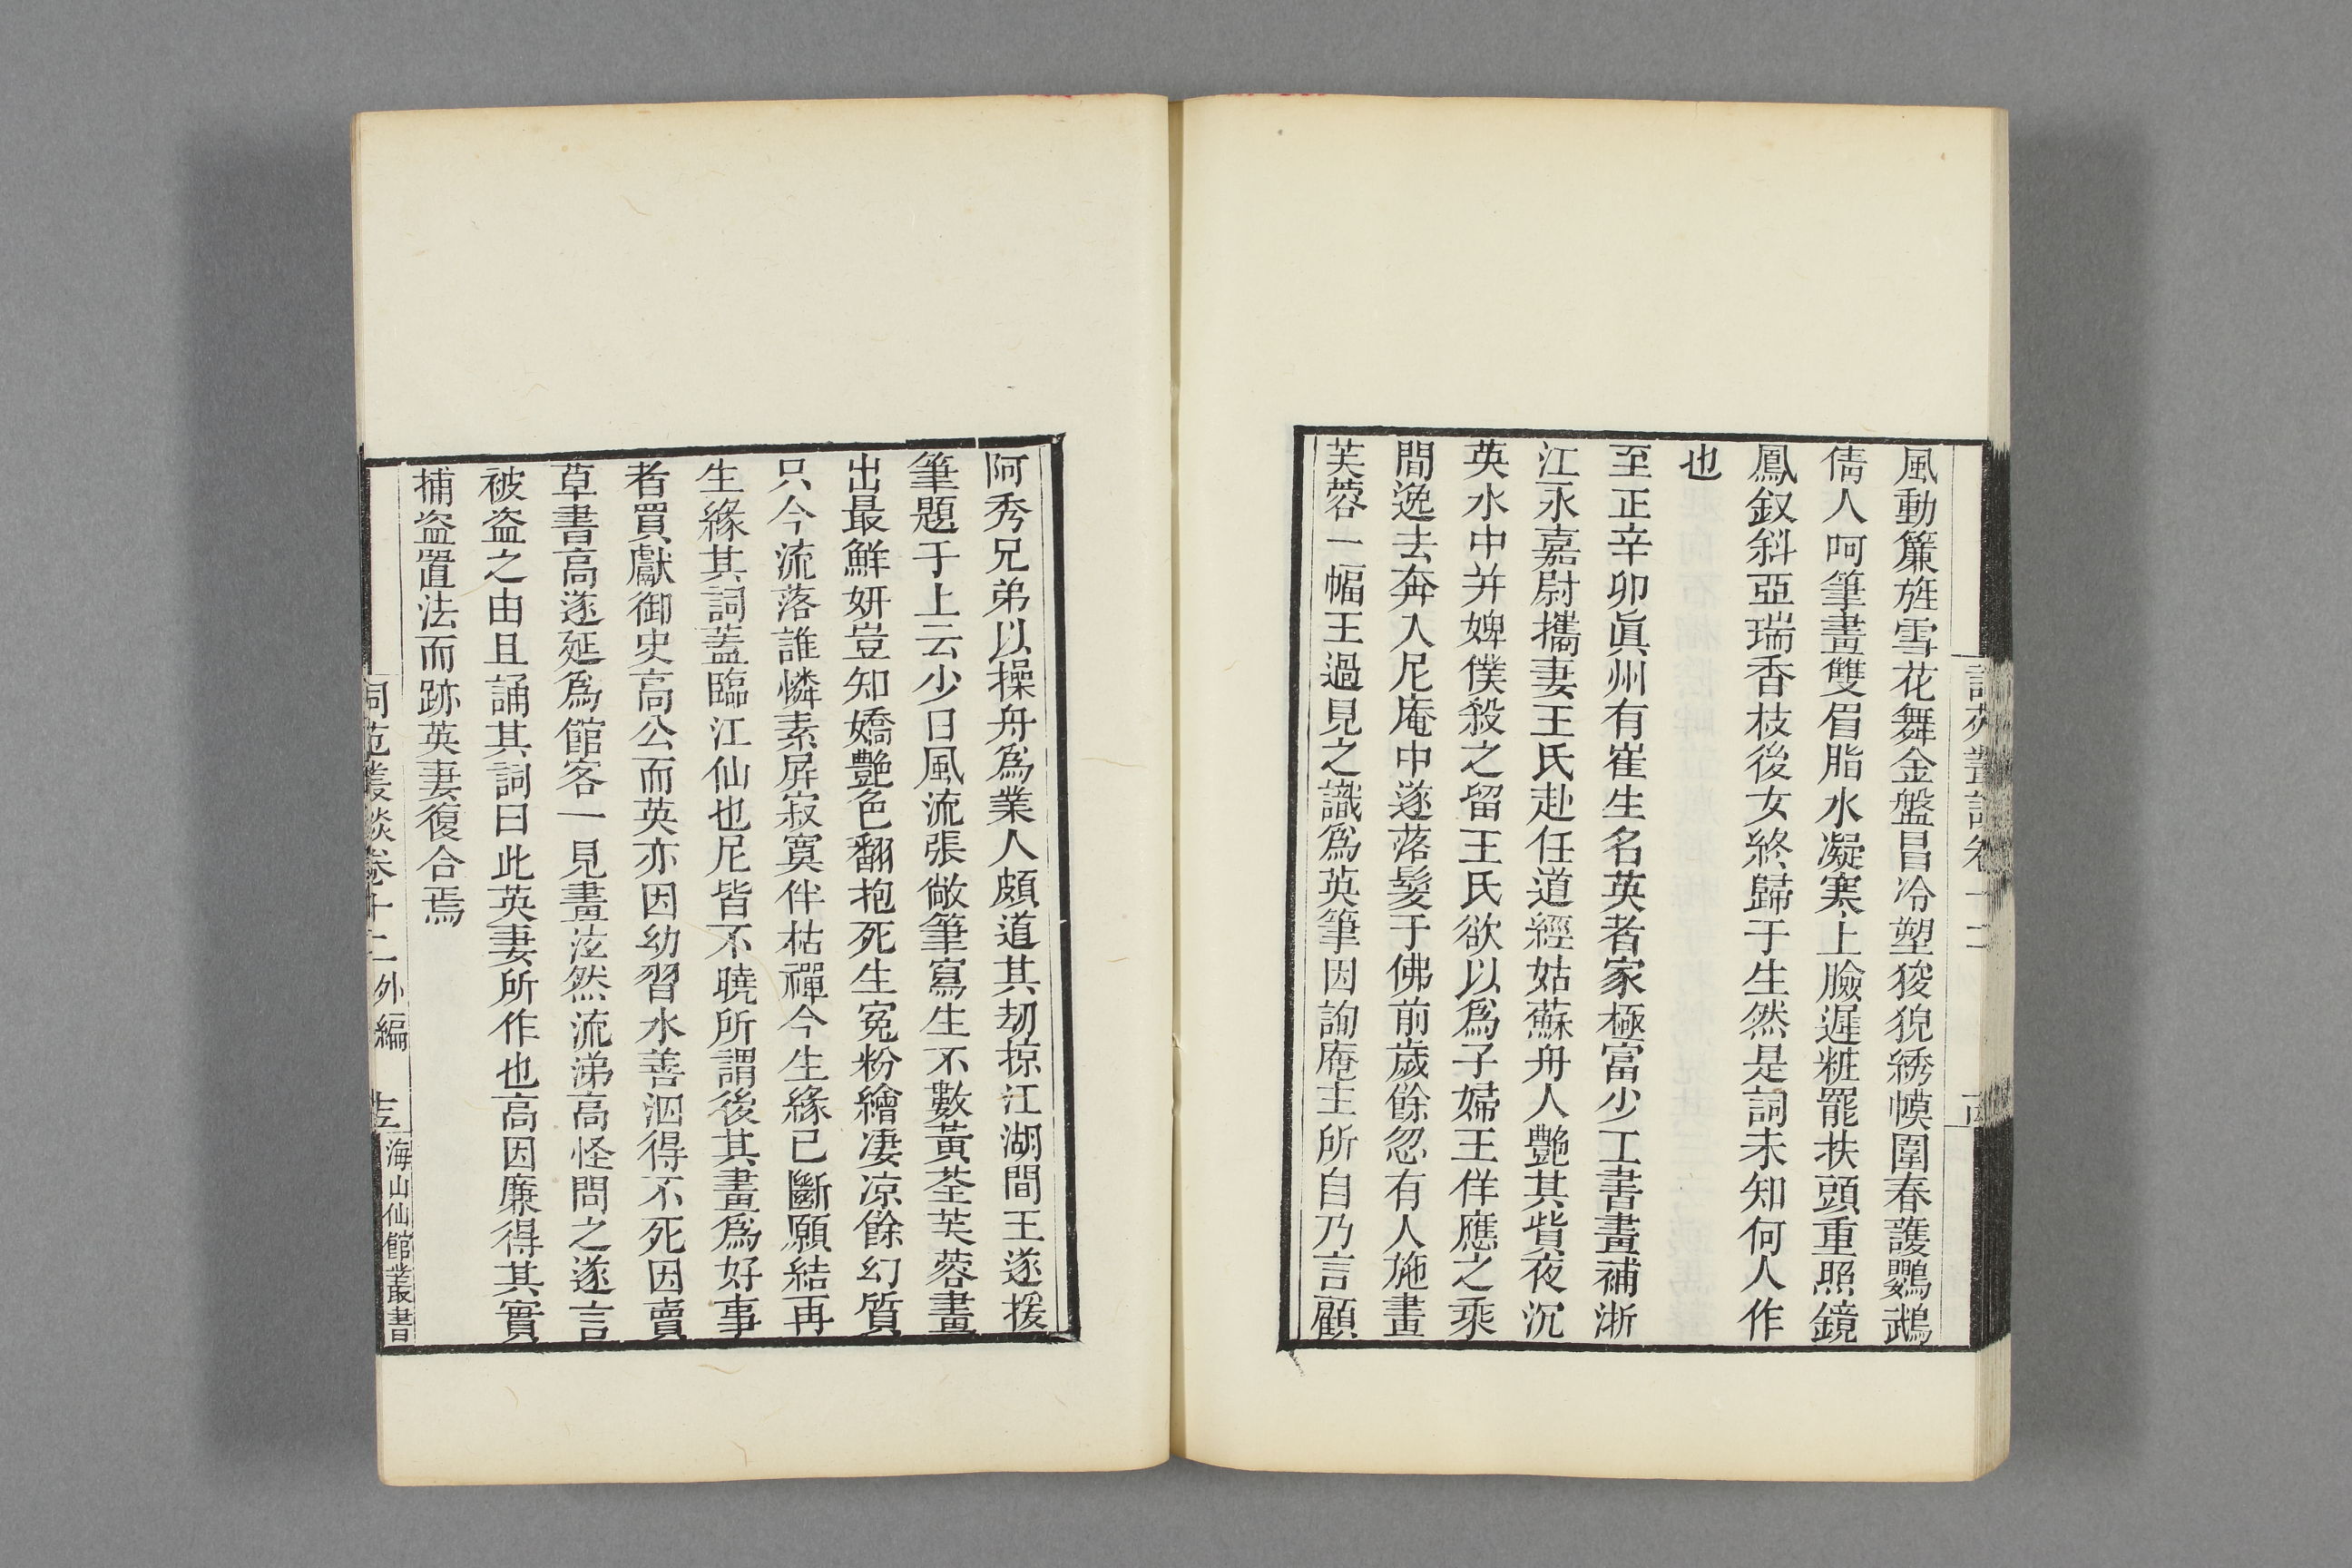 風動簾旌雪花舞金盤昌冷塑狻猊綉幙圍春護鸚鵡
倩人呵筆畫雙眉脂水凝寒上臉遲粧罷扶頭重照鏡
鳳釵斜亞瑞香枝後女終歸于生然是詞未知何人作
也
至正辛卯眞州有崔生名英者家極富少工書畫補浙
江永嘉尉攜妻王氏赴任道經姑蘇舟人艷其貲夜沉
英水中并婢僕殺之留王氏欲以爲子婦王佯應之乘
間逸去奔入尼庵中遂落髮于佛前歲餘忽有人施畫
芙蓉一幅王過見之識爲英筆因詢庵主所自乃言顧
阿秀兄弟以操舟爲業人頗道其刧掠江湖間王遂援
筆題于上云少日風流張敞筆寫生不數黃荃芙蓉畫
出最鮮妍豈知嬌艷色翻抱死生寃粉繪凄凉餘幻質
只今流落誰憐素屏寂寞伴枯禪今生緣已斷願結再
生緣其詞蓋臨江仙也尼皆不曉所謂後其畫爲好事
者買獻御史高公而英亦因幼習水善泅得不死因賣
草書高遂延爲館客一見畫泫然流涕高怪問之遂言
被盗之由且誦其詞曰此英妻所作也高因廉得其實
捕盗置法而跡英妻復合焉
詞苑叢談卷十二 外編
海山仙館叢書